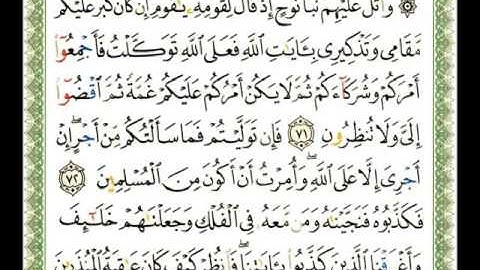 ۞ وَاتْلُ عَلَيْهِمْ نَبَأَ نُوحٍ إِذْ قَالَ لِقَوْمِهِ يَٰقَوْمِ إِن كَانَ كَبُرَ عَلَيْكُم
مَّقَامِى وَتَذْكِيرِى بِـَٔايَٰتِ ٱللَّهِ فَعَلَى ٱللَّهِ تَوَكَّلْتُ فَأَجْمِعُوٓا۟
أَمْرَكُمْ وَشُرَكَآءَكُمْ ثُمَّ لَا يَكُنْ أَمْرُكُمْ عَلَيْكُمْ غُمَّةً ثُمَّ ٱقْضُوٓا۟
إِلَىَّ وَلَا تُنظِرُونِ ٧١ فَإِن تَوَلَّيْتُمْ فَمَا سَأَلْتُكُم مِّنْ أَجْرٍ ۖ إِنْ
أَجْرِىَ إِلَّا عَلَى ٱللَّهِ ۖ وَأُمِرْتُ أَنْ أَكُونَ مِنَ ٱلْمُسْلِمِينَ ٧٢
فَكَذَّبُوهُ فَنَجَّيْنَٰهُ وَمَن مَّعَهُۥ فِى ٱلْفُلْكِ وَجَعَلْنَٰهُمْ خَلَٰٓئِفَ
وَأَغْرَقْنَا ٱلَّذِينَ كَذَّبُوا۟ بِـَٔايَٰتِنَا ۖ فَٱنظُرْ كَيْفَ كَانَ عَٰقِبَةُ ٱلْمُنذَرِينَ